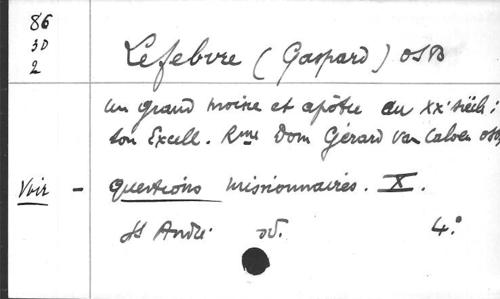 86
3D
2
Lefebvre (Gaspard) OSB
un grand moine et apôtre du XXe siècle :
son Excell. Rme Dom Gérard van Caloen OSB
Voir - Questions missionnaires. X.
St André sd. 4°